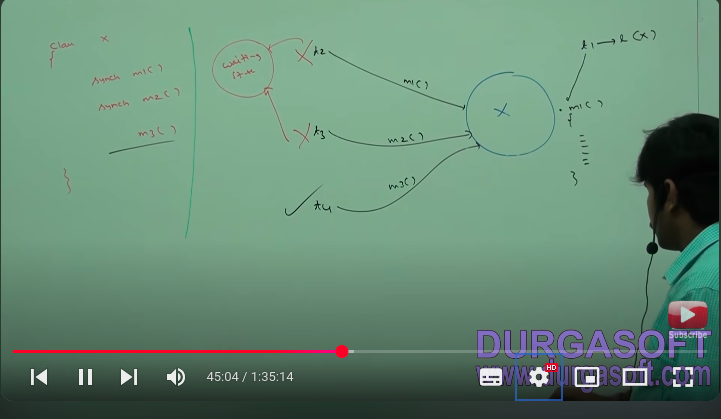 Class X
{
synch m1( )
synch m2( )
m3( )
}
waiting
state
t2
m1( )
t3
m2( )
t4
m3( )
X
t1 → l(X)
m1( )
{
}
Subscribe
DURGASOFT
www.durgasoft.com
45:04 / 1:35:14
HD